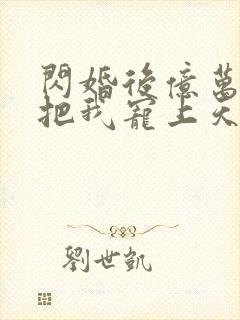 閃婚後億萬
把我寵上天
劉世凱